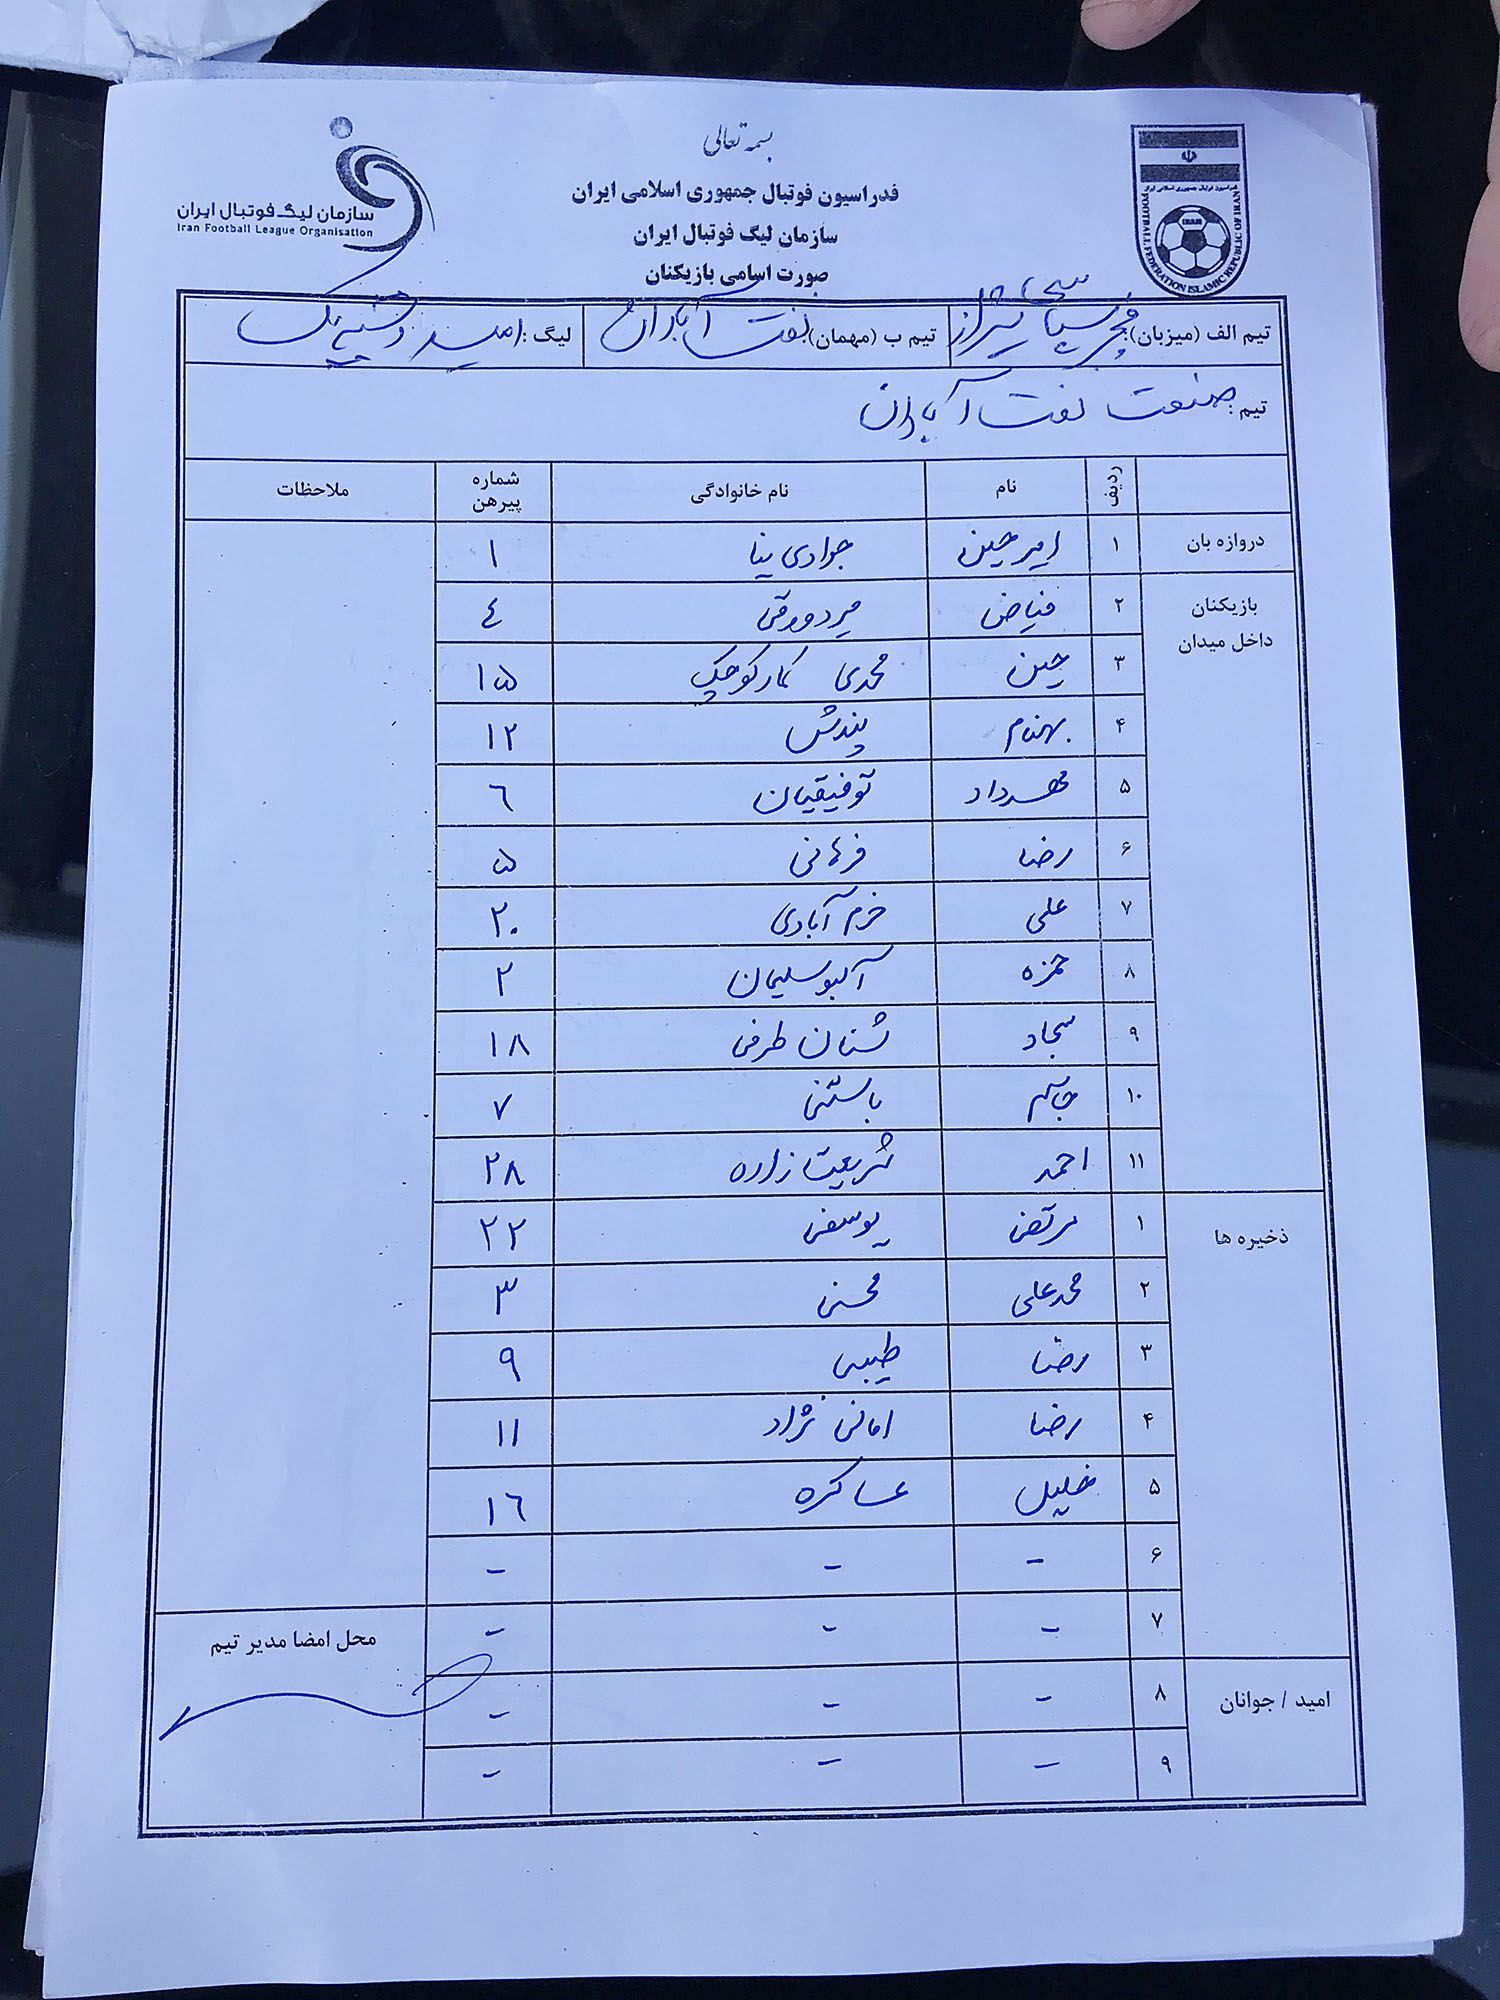 بسمه تعالی
فدراسیون فوتبال جمهوری اسلامی ایران
سازمان لیگ فوتبال ایران
صورت اسامی بازیکنان
سازمان لیگ فوتبال ایران
Iran Football League Organisation
فدراسیون فوتبال جمهوری اسلامی ایران
IRAN
FOOTBALL FEDERATION ISLAMIC REPUBLIC OF IRAN
تیم الف (میزبان): شیراز تیم ب (مهمان): نفت آبادان لیگ: امید
تیم: صنعت نفت آبادان
ردیف نام نام خانوادگی شماره پیرهن ملاحظات
دروازه بان ۱ امیرحسین جوادی نیا ۱
بازیکنان داخل میدان ۲ فیاض میردورقی ٤
۳ حسین محمدی کمارکوچک ۱۵
۴ بهنام پندش ۱۲
۵ مهرداد توفیقیان ٦
۶ رضا فرهانی ۵
۷ علی خرم آبادی ۲۰
۸ حمزه آلبوسلیمان ۲
۹ سجاد شنان طرفی ۱۸
۱۰ جاسم باستنی ۷
۱۱ احمد شریعت زاده ۲۸
ذخیره ها ۱ مرتضی یوسفی ۲۲
۲ محمدعلی محسنی ۳
۳ رضا طبیبی ۹
۴ رضا امانی نژاد ۱۱
۵ خلیل عساکره ۱٦
۶ - - -
۷ - - -
امید / جوانان ۸ - - -
۹ - - -
محل امضا مدیر تیم